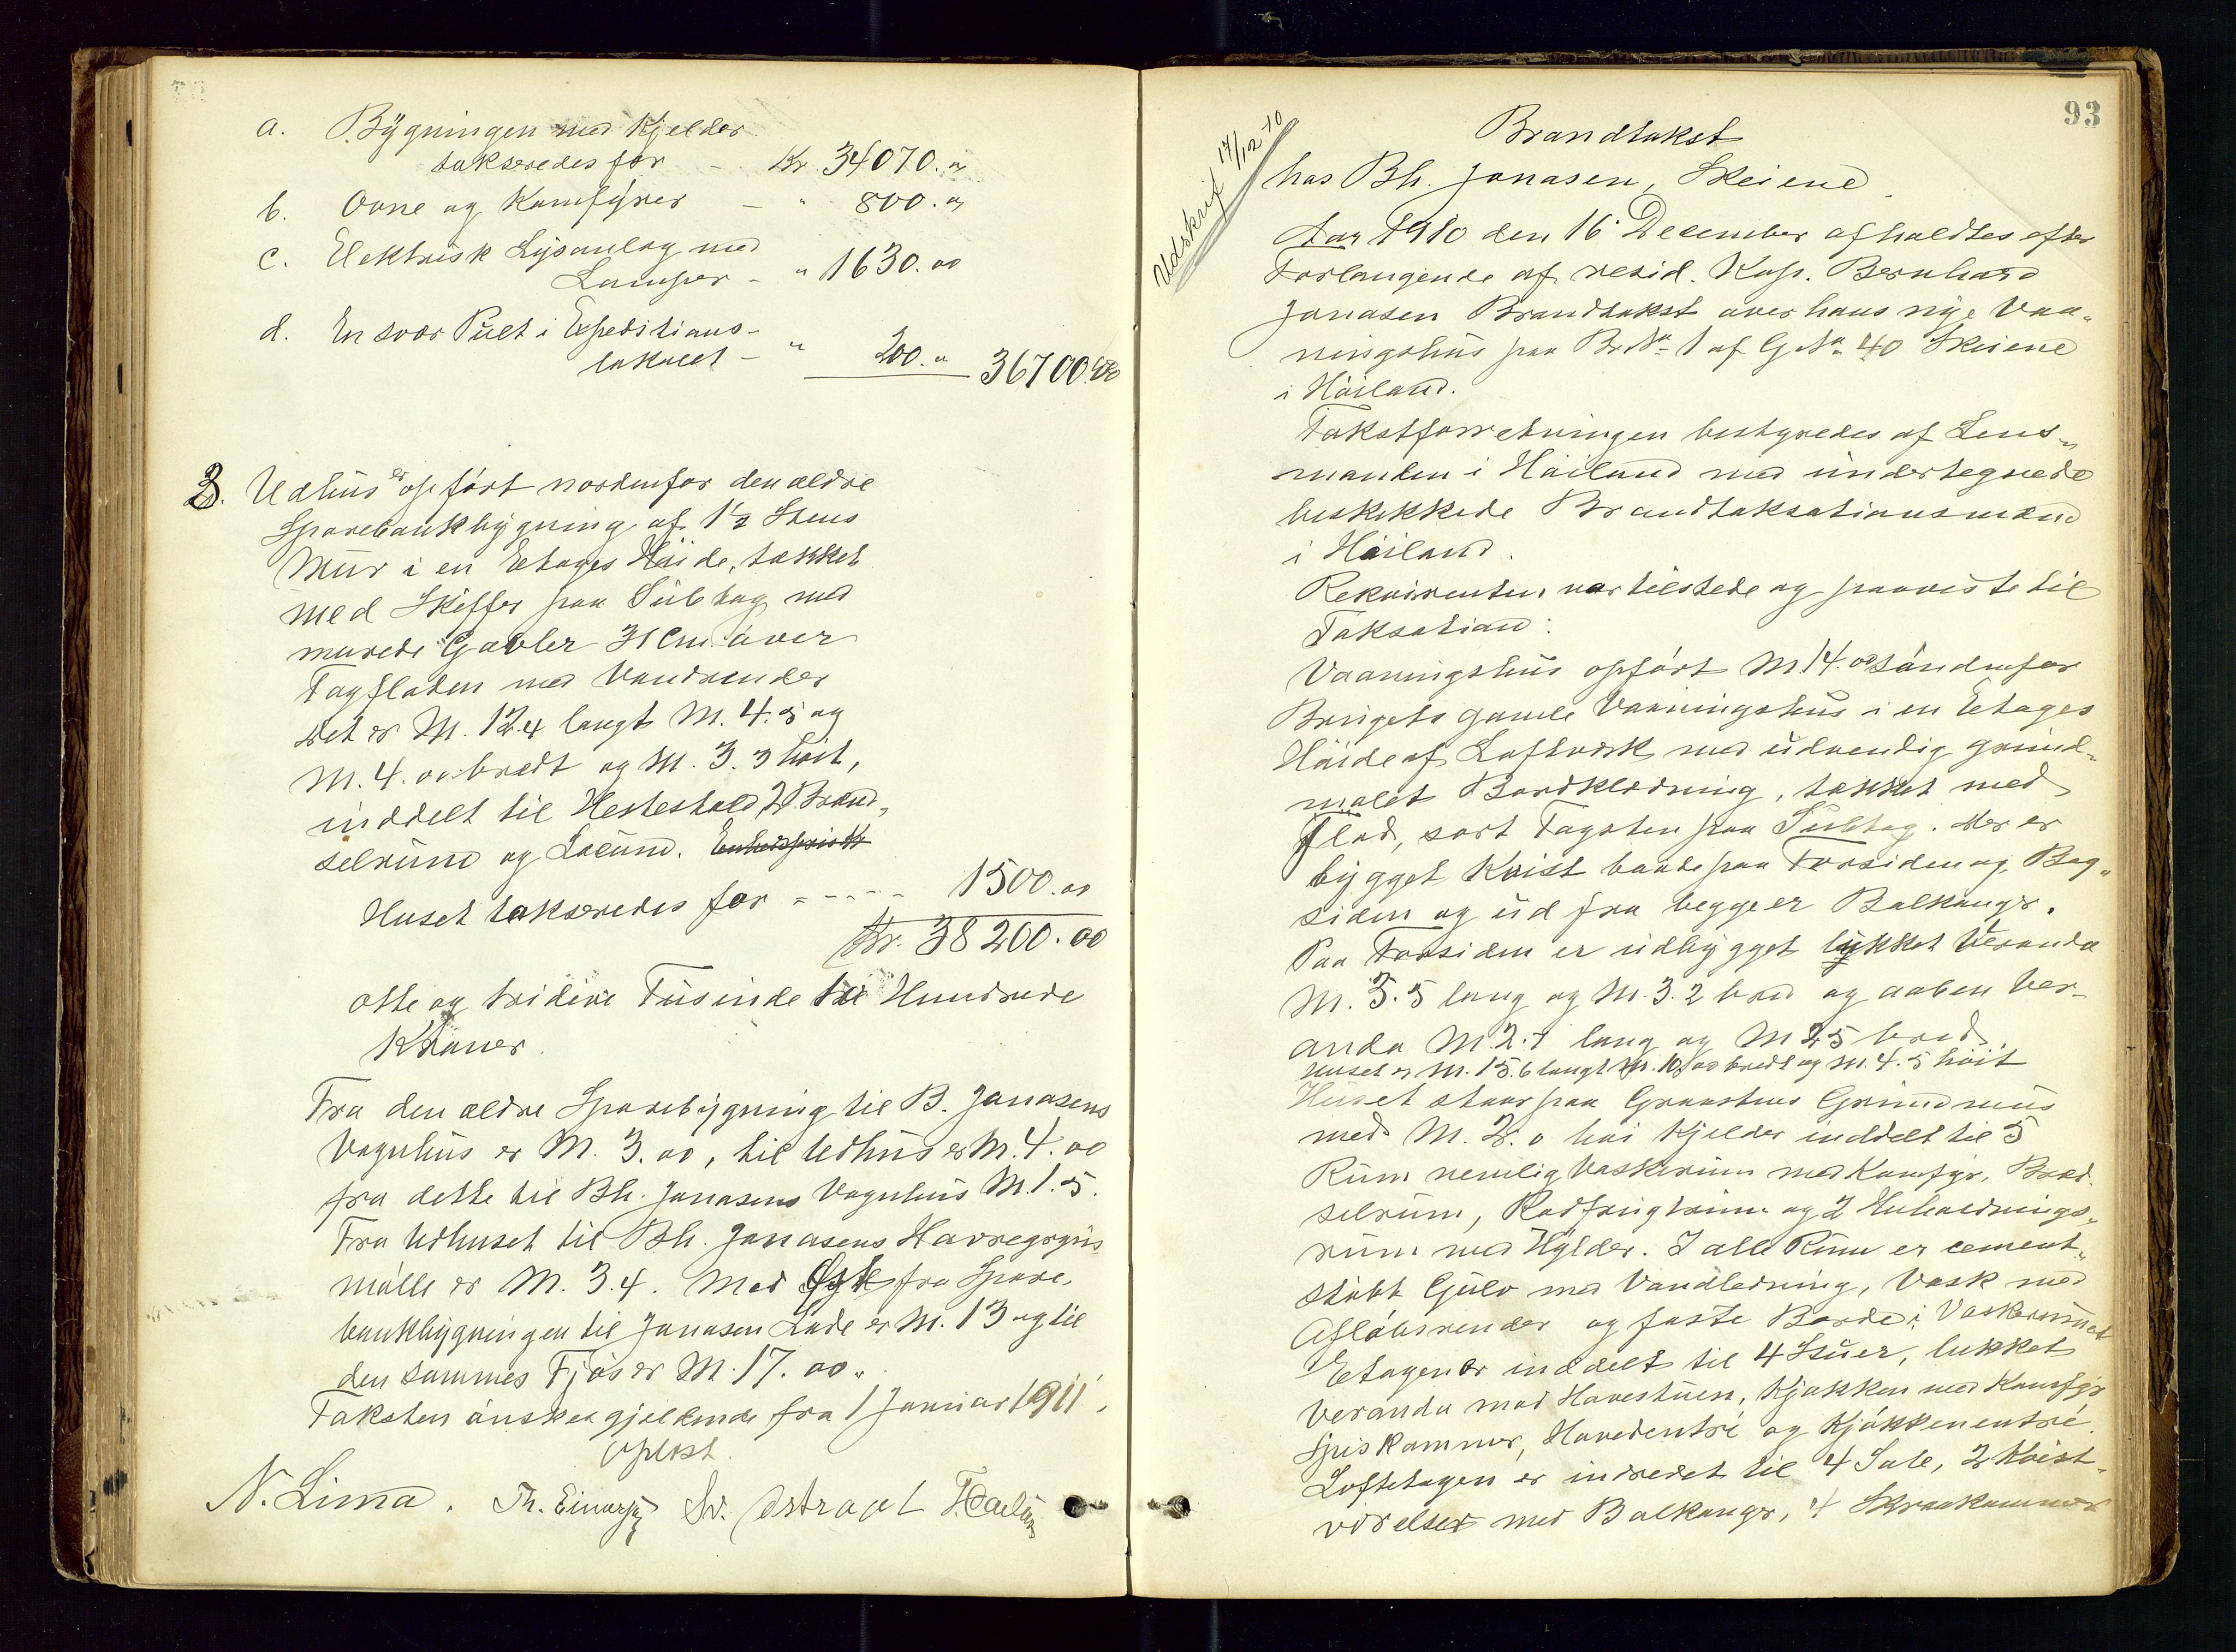 a. Bygningen med Kjelder
takseredes for - Kr. 34070. "
b. Ovne og Komfyrer - " 800. "
c. Elektrisk Lysanlæg med
Lamper - " 1630. 00
d. En svær Pult i Expeditions-
lokalet - " 200. " 36700.00
3. Udhus er opført nordenfor den ældre
Sparebankbygning af 1½ Stens
Mur i en Etages Høide, tækket
med Skiffer paa Sultag med
murede Gavler 31 Cm. over
Tagfladen med Vandrender
Det er M. 12.4 langt M. 4.5 og
M. 4. 00 bredt og M. 3. 3 høit,
inddelt til Hestestald, 2 Brænd-
selrum og Locum.
Huset takseredes for - - - - - 1500. 00
Kr. 38200. 00
otte og tredive Tusinde to Hundrede
Kroner
Fra den ældre Sparebygning til B. Jonasens
Vognhus er M. 3. 00, til Udhus er M. 4. 00
fra dette til Bh. Jonasens Vognhus M. 1. 5.
Fra Udhuset til Bh. Jonasens Havregryns
mølle er M. 3. 4. Mod Øst fra Spare-
bankbygningen til Jonasen Lade er M. 13 og til
den sammes Fjøs er M. 17. 00.
Taksten ønskes gjeldende fra 1 Januar 1911.
Oplæst.
N. Lima. Th. Einarsen Sv. Østraat
93
Udskrift 17/12-10
Brandtakst
hos Bh. Jonasen, Skeiene
Aar 1910 den 16 December afholdtes efter
Forlangende af resid. Kap. Bernhard
Jonasen Brandtakst over hans nye Vaa-
ningshus paa Br.No 1 af G.No 40 Skeiene
i Høiland.
Takstforretningen bestyredes af Lens-
manden i Høiland med undertegnede
beskikkede Brandtaksationsmænd
i Høiland.
Rekvirenten var tilstede og paaviste til
Taksation:
Vaaningshus opført M. 14. 00 søndenfor
Brugets gamle Vaaningshus i en Etages
Høide af Loftværk med udvendig grund-
malet Bordklædning, tækket med
flad, sort Tagsten paa Sultag. Der er
bygget Kvist baade paa Forsiden og Bag-
siden og ud fra begge er Balkonger.
Paa Forsiden er udbygget lukket Veranda
M. 3. 5 lang og M. 3. 2 bred og aaben Ver-
anda M. 2. 7 lang og M 2.5 bred.
Huset er M. 15. 6 langt M. 10,00 bredt og M. 4. 5 høit
Huset staar paa Graastens Grundmur
med M. 2. 0 høi Kjelder inddelt til 5
Rum nemlig Vaskerum med Komfyr, Bræd.
selrum, Rodfrugtrum og 2 Huholdnings-
rum med Hylder. I alle Rum er cement-
støbt Gulv med Vandledning, Vask med
Afløbsrender og faste Borde i Vaskerummet
Etagen er inddelt til 4 Stuer, lukket
Veranda mod Havestuen, Kjøkken med Komfyr
Spiskammer, Hovedentré og Kjøkkenentré.
Loftetagen er indredet til 4 Sale, 2 Kvist-
værelser med Balkonger, 4 Skraakammer